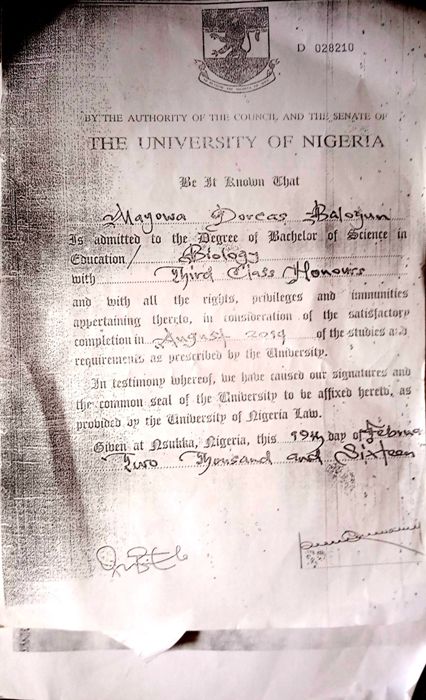 D 028210
BY THE AUTHORITY OF THE COUNCIL AND THE SENATE OF
THE UNIVERSITY OF NIGERIA
Be It Known That
Mayowa Dorcas Balogun
Is admitted to the Degree of Bachelor of Science in
Education/ Biology
with Third Class Honours
and with all the rights, privileges and immunities
appertaining thereto, in consideration of the satisfactory
completion in August 2014 of the studies and
requirements as prescribed by the University.
In testimony whereof, we have caused our signatures and
the common seal of the University to be affixed hereto, as
provided by the University of Nigeria Law.
Given at Nsukka, Nigeria, this 19th day of Februa
Two Thousand and Sixteen